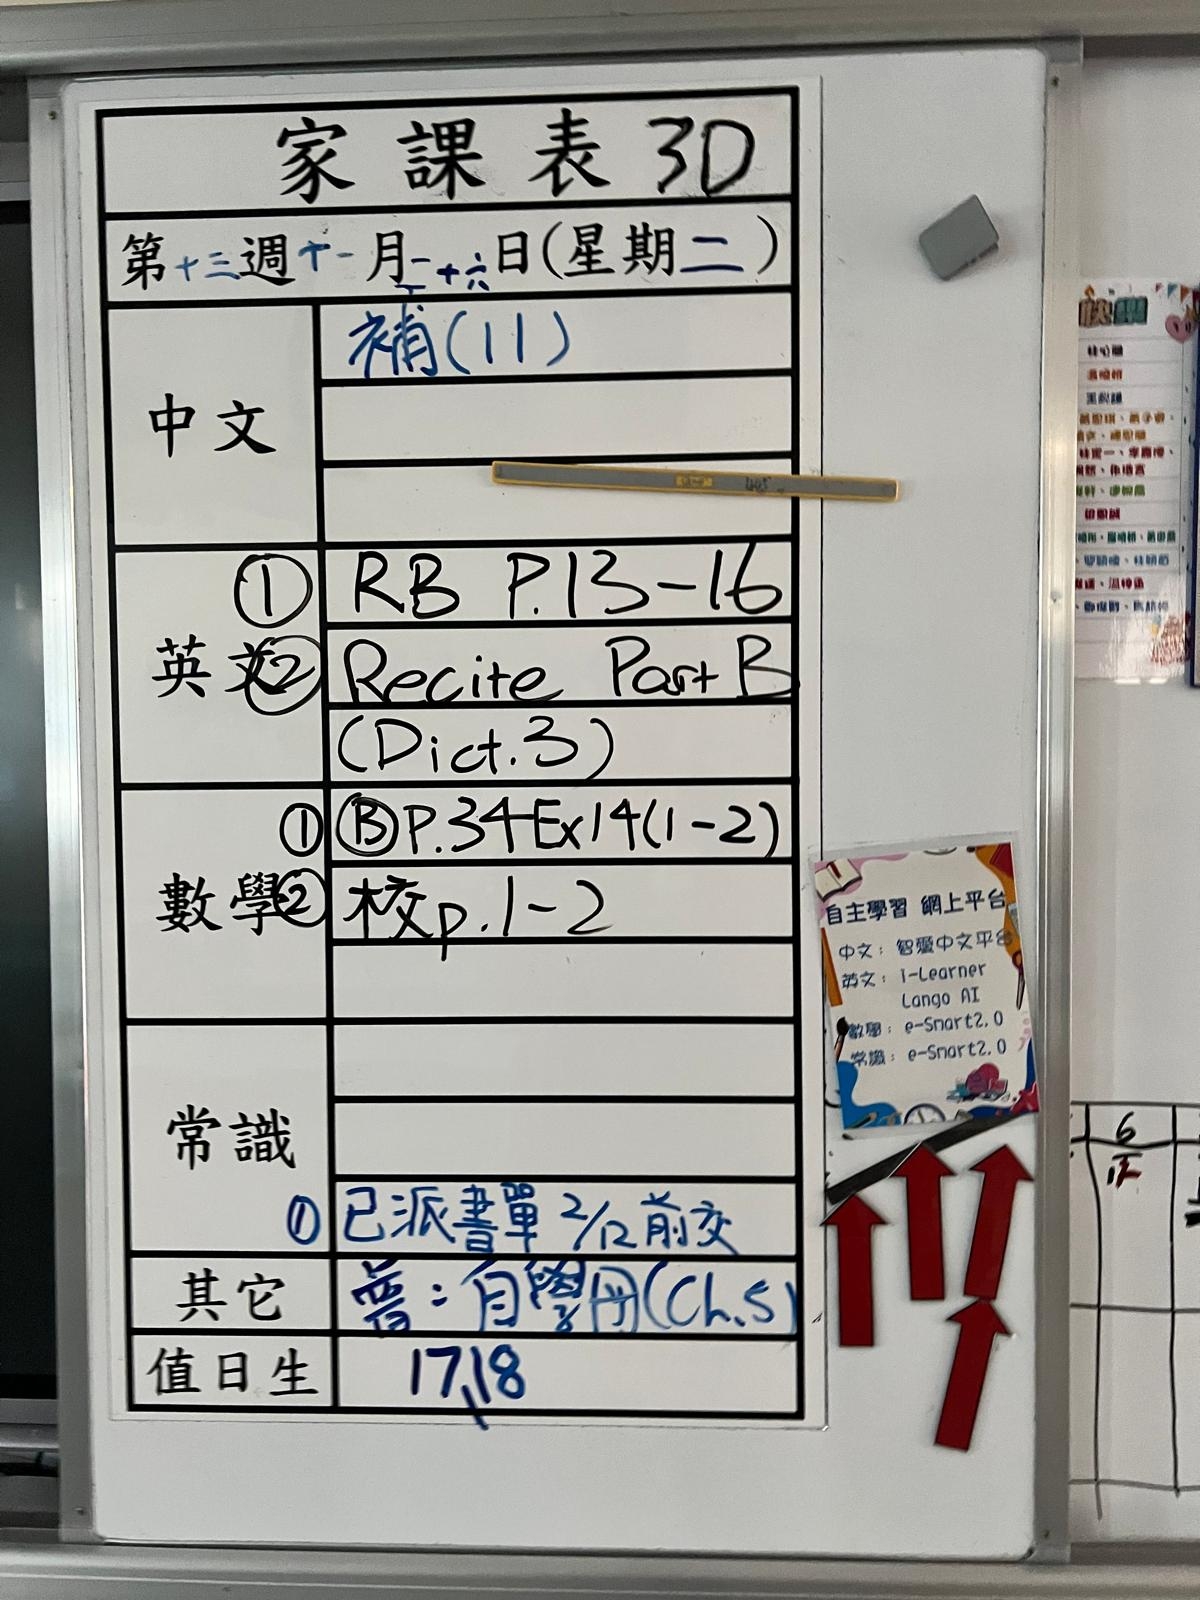 家課表 3D
第十三週十一月二十六日(星期二)
中文
補(11)
英文
① RB P.13-16
② Recite Part B
(Dict.3)
數學
① Ⓑ P.34 Ex14(1-2)
② 校p.1-2
常識
① 已派書單 2/12前交
其它
普:自學冊(Ch.5)
值日生
17,18
自主學習 網上平台
中文: 智愛中文平台
英文: i-Learner
Lango AI
數學: e-Smart2.0
常識: e-Smart2.0
6